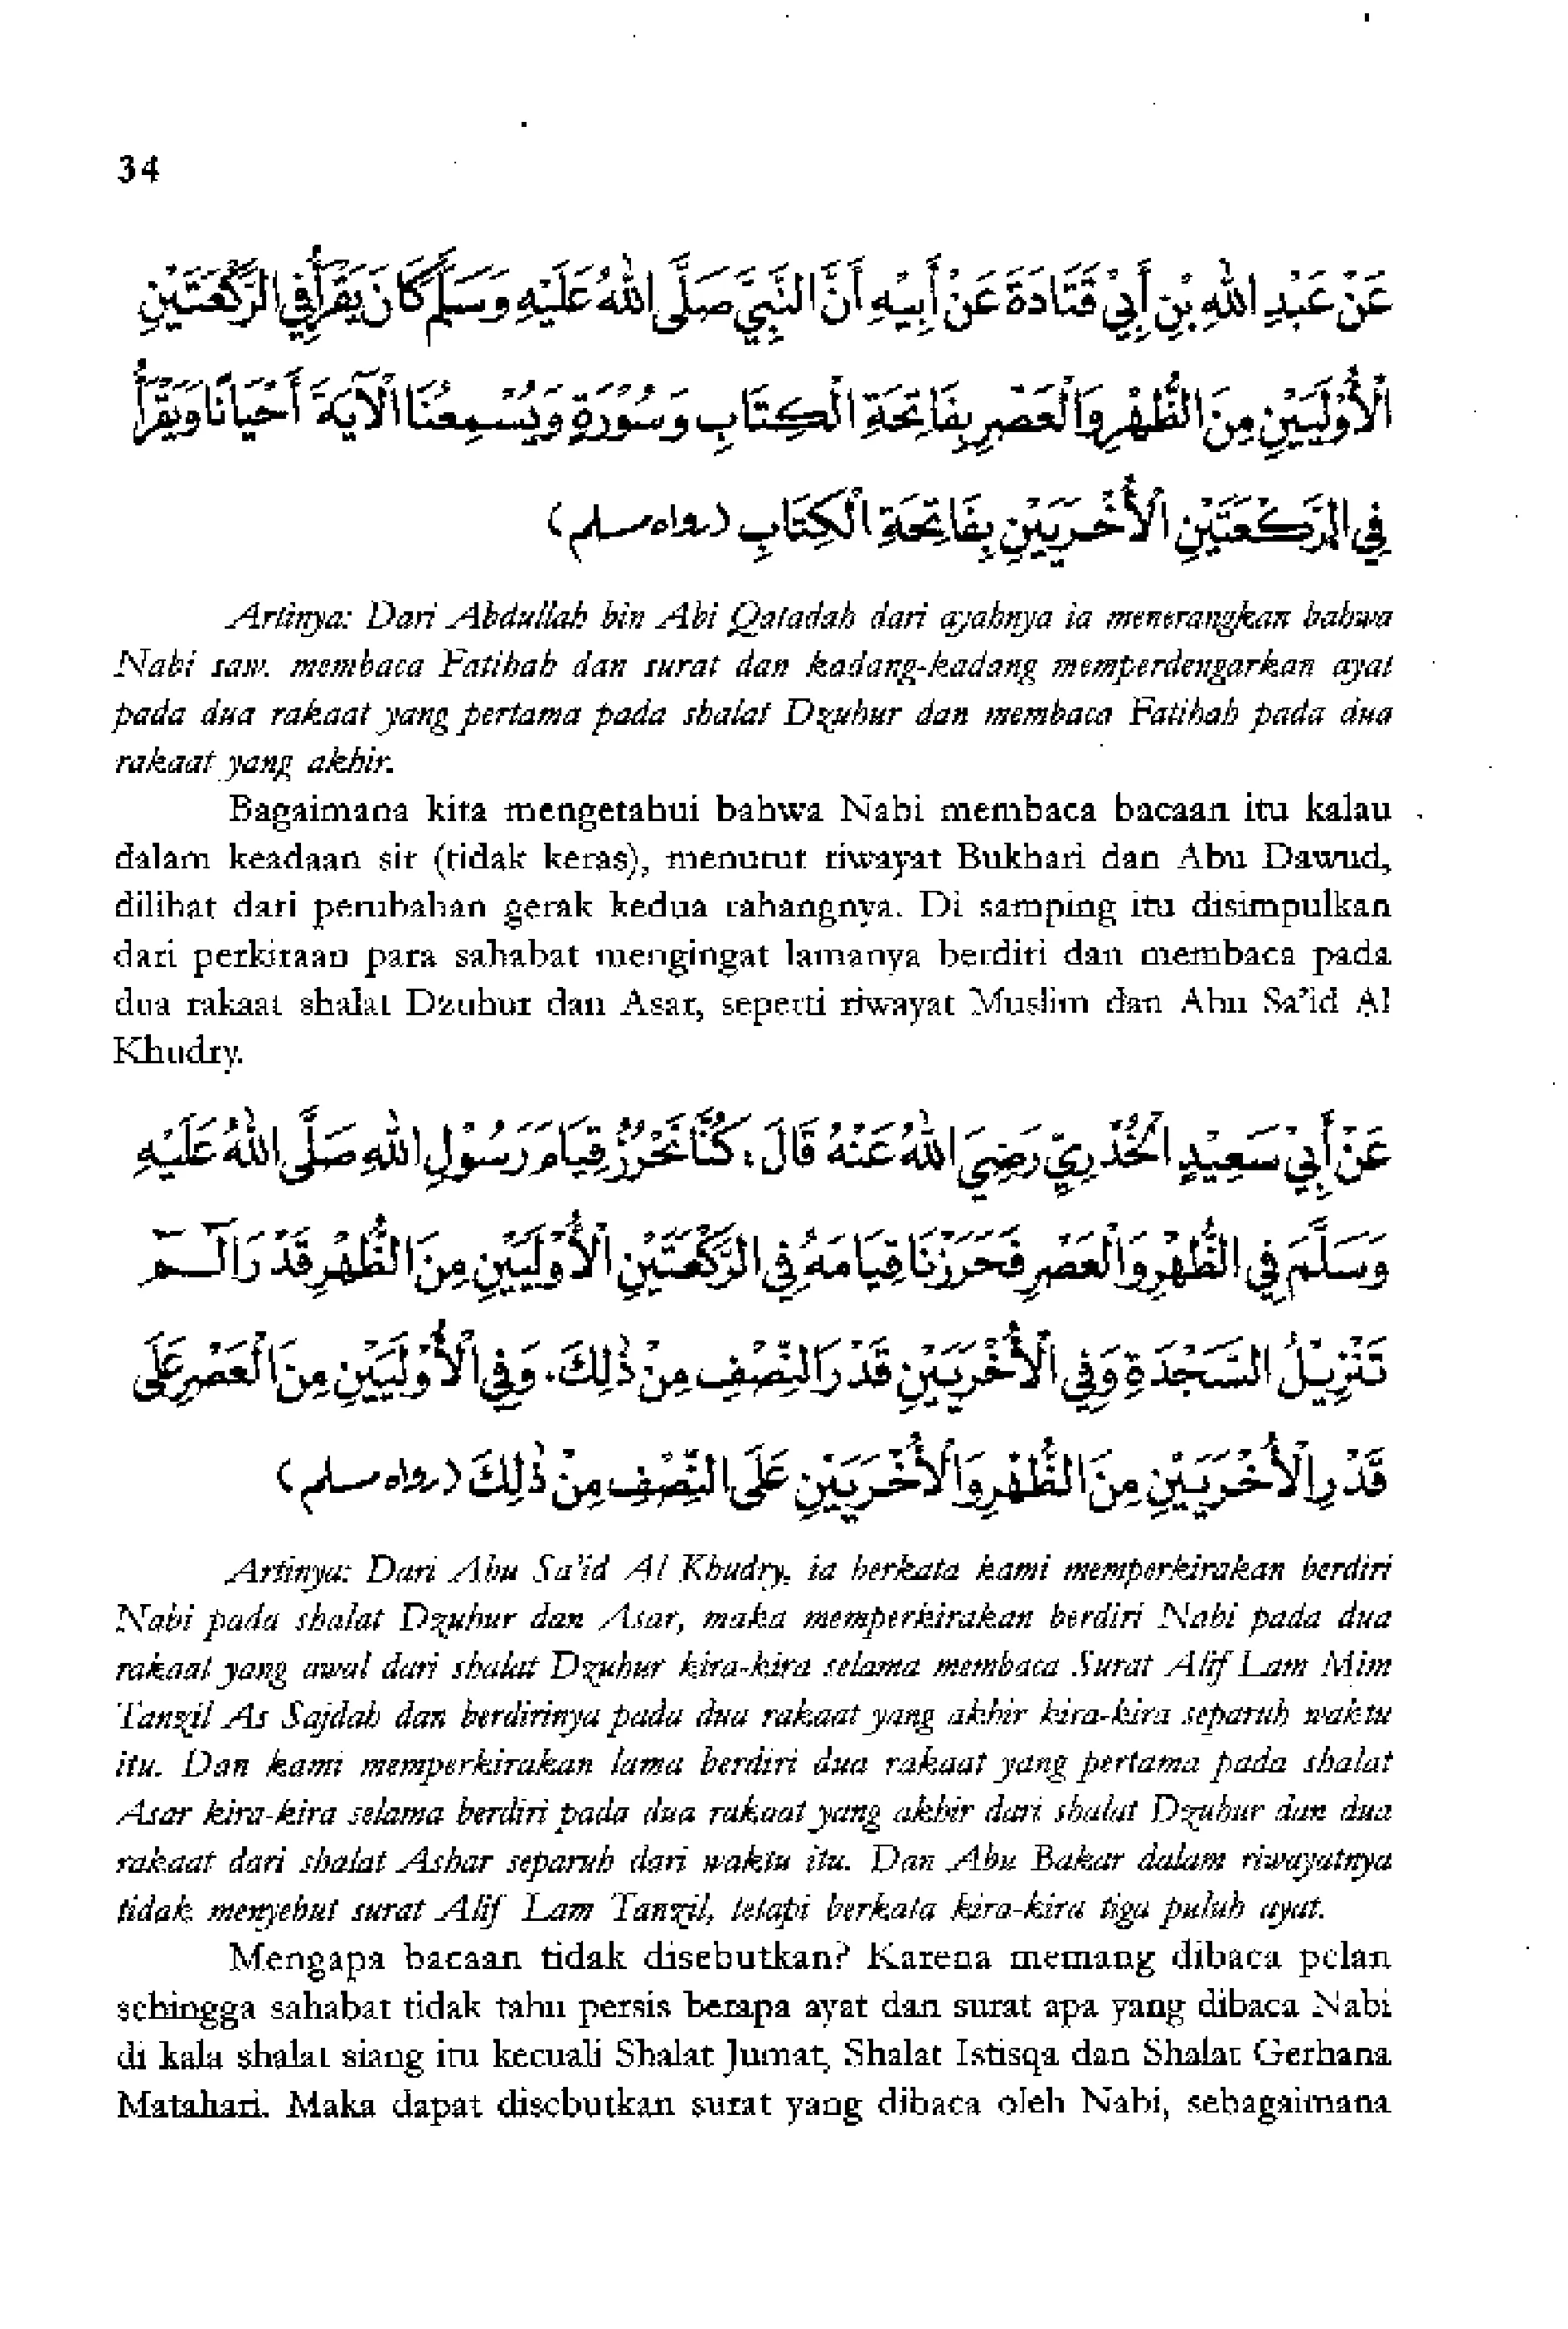 34
عَنْ عَبْدِ اللهِ بْنِ أَبِيْ قَتَادَةَ عَنْ أَبِيْهِ أَنَّ النَّبِيَّ صَلَّى اللهُ عَلَيْهِ وَسَلَّمَ كَانَ يَقْرَأُ فِي الرَّكْعَتَيْنِ
الْأُوْلَيَيْنِ مِنَ الظُّهْرِ وَالْعَصْرِ بِفَاتِحَةِ الْكِتَابِ وَسُوْرَةٍ وَيُسْمِعُنَا الْآيَةَ أَحْيَانًا وَيَقْرَأُ
فِي الرَّكْعَتَيْنِ الْأُخْرَيَيْنِ بِفَاتِحَةِ الْكِتَابِ (رواه مسلم)
Artinya: Dari Abdullah bin Abi Qatadah dari ayahnya ia menerangkan bahwa
Nabi saw. membaca Fatihah dan surat dan kadang-kadang memperdengarkan ayat
pada dua rakaat yang pertama pada shalat Dzuhur dan membaca Fatihah pada dua
rakaat yang akhir.
Bagaimana kita mengetahui bahwa Nabi membaca bacaan itu kalau
dalam keadaan sir (tidak keras), menurut riwayat Bukhari dan Abu Dawud,
dilihat dari perubahan gerak kedua rahangnya. Di samping itu disimpulkan
dari perkiraan para sahabat mengingat lamanya berdiri dan membaca pada
dua rakaat shalat Dzuhur dan Asar, seperti riwayat Muslim dan Abu Sa'id Al
Khudry.
عَنْ أَبِيْ سَعِيْدٍ الْخُدْرِيِّ رَضِيَ اللهُ عَنْهُ قَالَ، كُنَّا نَحْزُرُ قِيَامَ رَسُوْلِ اللهِ صَلَّى اللهُ عَلَيْهِ
وَسَلَّمَ فِي الظُّهْرِ وَالْعَصْرِ فَحَزَرْنَا قِيَامَهُ فِي الرَّكْعَتَيْنِ الْأُوْلَيَيْنِ مِنَ الظُّهْرِ قَدْرَ الٓـمّٓ
تَنْزِيْلُ السَّجْدَةِ وَفِي الْأُخْرَيَيْنِ قَدْرَ النِّصْفِ مِنْ ذٰلِكَ. وَفِي الْأُوْلَيَيْنِ مِنَ الْعَصْرِ عَلَى
قَدْرِ الْأُخْرَيَيْنِ مِنَ الظُّهْرِ وَالْأُخْرَيَيْنِ عَلَى النِّصْفِ مِنْ ذٰلِكَ (رواه مسلم)
Artinya: Dari Abu Sa'id Al Khudry, ia berkata kami memperkirakan berdiri
Nabi pada shalat Dzuhur dan Asar, maka memperkirakan berdiri Nabi pada dua
rakaat yang awal dari shalat Dzuhur kira-kira selama membaca Surat Alif Lam Mim
Tanzil As Sajdah dan berdirinya pada dua rakaat yang akhir kira-kira separuh waktu
itu. Dan kami memperkirakan lama berdiri dua rakaat yang pertama pada shalat
Asar kira-kira selama berdiri pada dua rakaat yang akhir dari shalat Dzuhur dan dua
rakaat dari shalat Ashar separuh dari waktu itu. Dan Abu Bakar dalam riwayatnya
tidak menyebut surat Alif Lam Tanzil, tetapi berkata kira-kira tiga puluh ayat.
Mengapa bacaan tidak disebutkan? Karena memang dibaca pelan
sehingga sahabat tidak tahu persis berapa ayat dan surat apa yang dibaca Nabi
di kala shalat siang itu kecuali Shalat Jumat, Shalat Istisqa dan Shalat Gerhana
Matahari. Maka dapat disebutkan surat yang dibaca oleh Nabi, sebagaimana